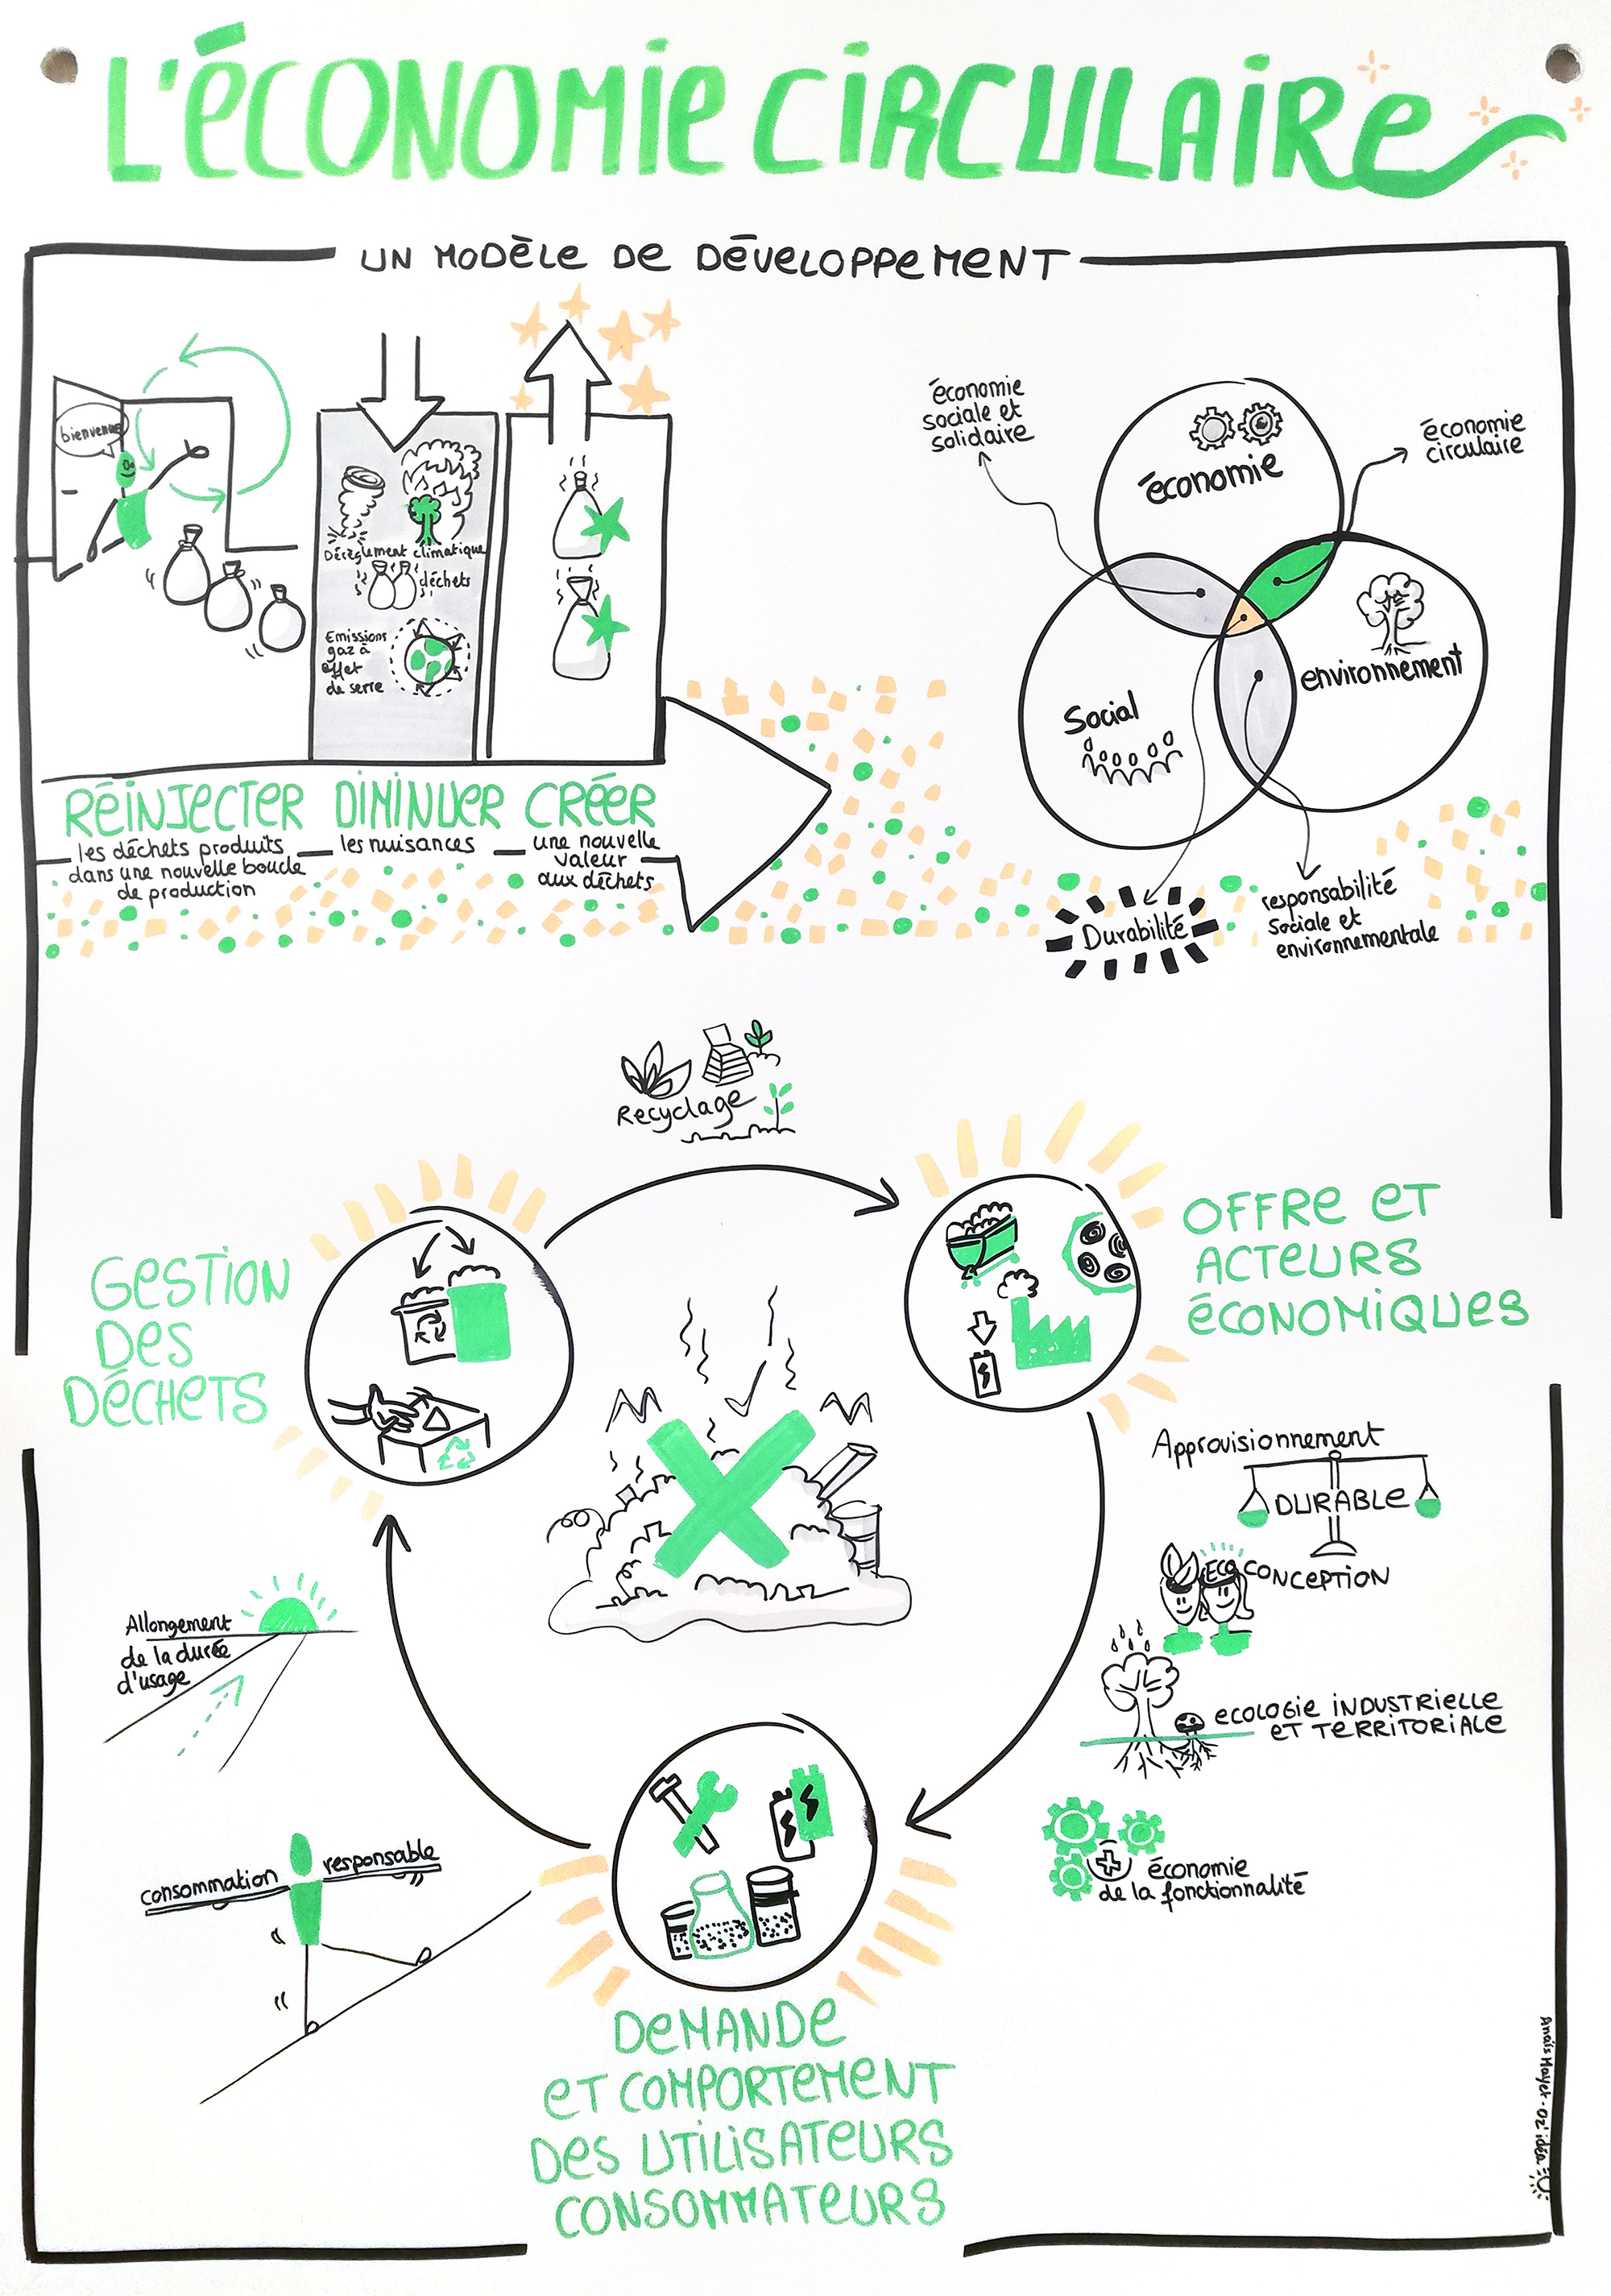 L'ÉCONOMIE CIRCULAIRE
UN MODÈLE DE DÉVELOPPEMENT
bienvenue
Dérèglement climatique
déchets
Emissions
gaz à
effet
de serre
RÉINJECTER
les déchets produits
dans une nouvelle boucle
de production
DIMINUER
les nuisances
CRÉER
une nouvelle
valeur
aux déchets
économie
sociale et
solidaire
économie
économie
circulaire
Social
environnement
Durabilité
responsabilité
Sociale et
environnementale
Recyclage
GESTION
DES
DÉCHETS
OFFRE ET
ACTEURS
ÉCONOMIQUES
Approvisionnement
DURABLE
ECO CONCEPTION
ECOLOGIE INDUSTRIELLE
ET TERRITORIALE
économie
de la fonctionnalité
Allongement
de la durée
d'usage
consommation responsable
DEMANDE
ET COMPORTEMENT
DES UTILISATEURS
CONSOMMATEURS
Anaïs Mayet - Oz' idéa